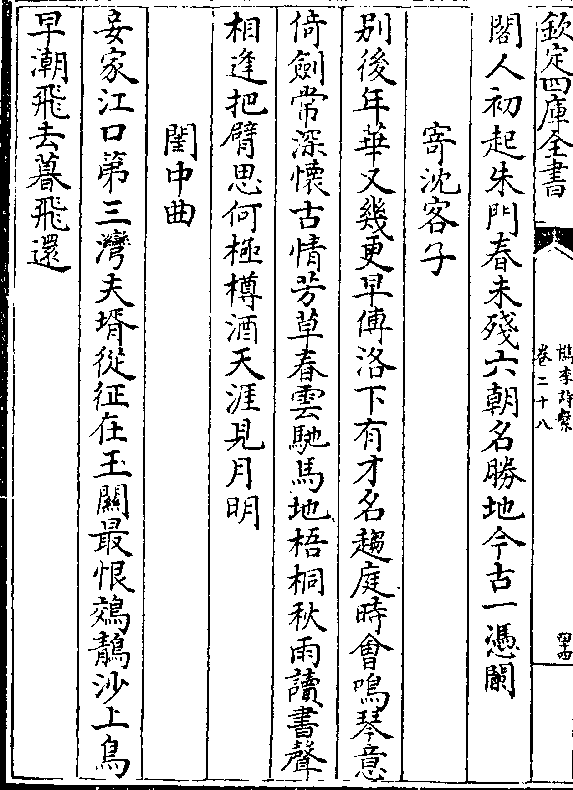 欽定四庫全書
檇李詩繫
卷二十八
四十四
閣人初起朱門春未殘六朝名勝地今古一憑闌
寄沈客子
別後年華又幾更早傳洛下有才名趨庭時會鳴琴意
倚劍常深懷古情芳草春雲馳馬地梧桐秋雨讀書聲
相逢把臂思何極樽酒天涯見月明
閨中曲
妾家江口第三灣夫壻從征在玉關最恨鵁鶄沙上鳥
早潮飛去暮飛還